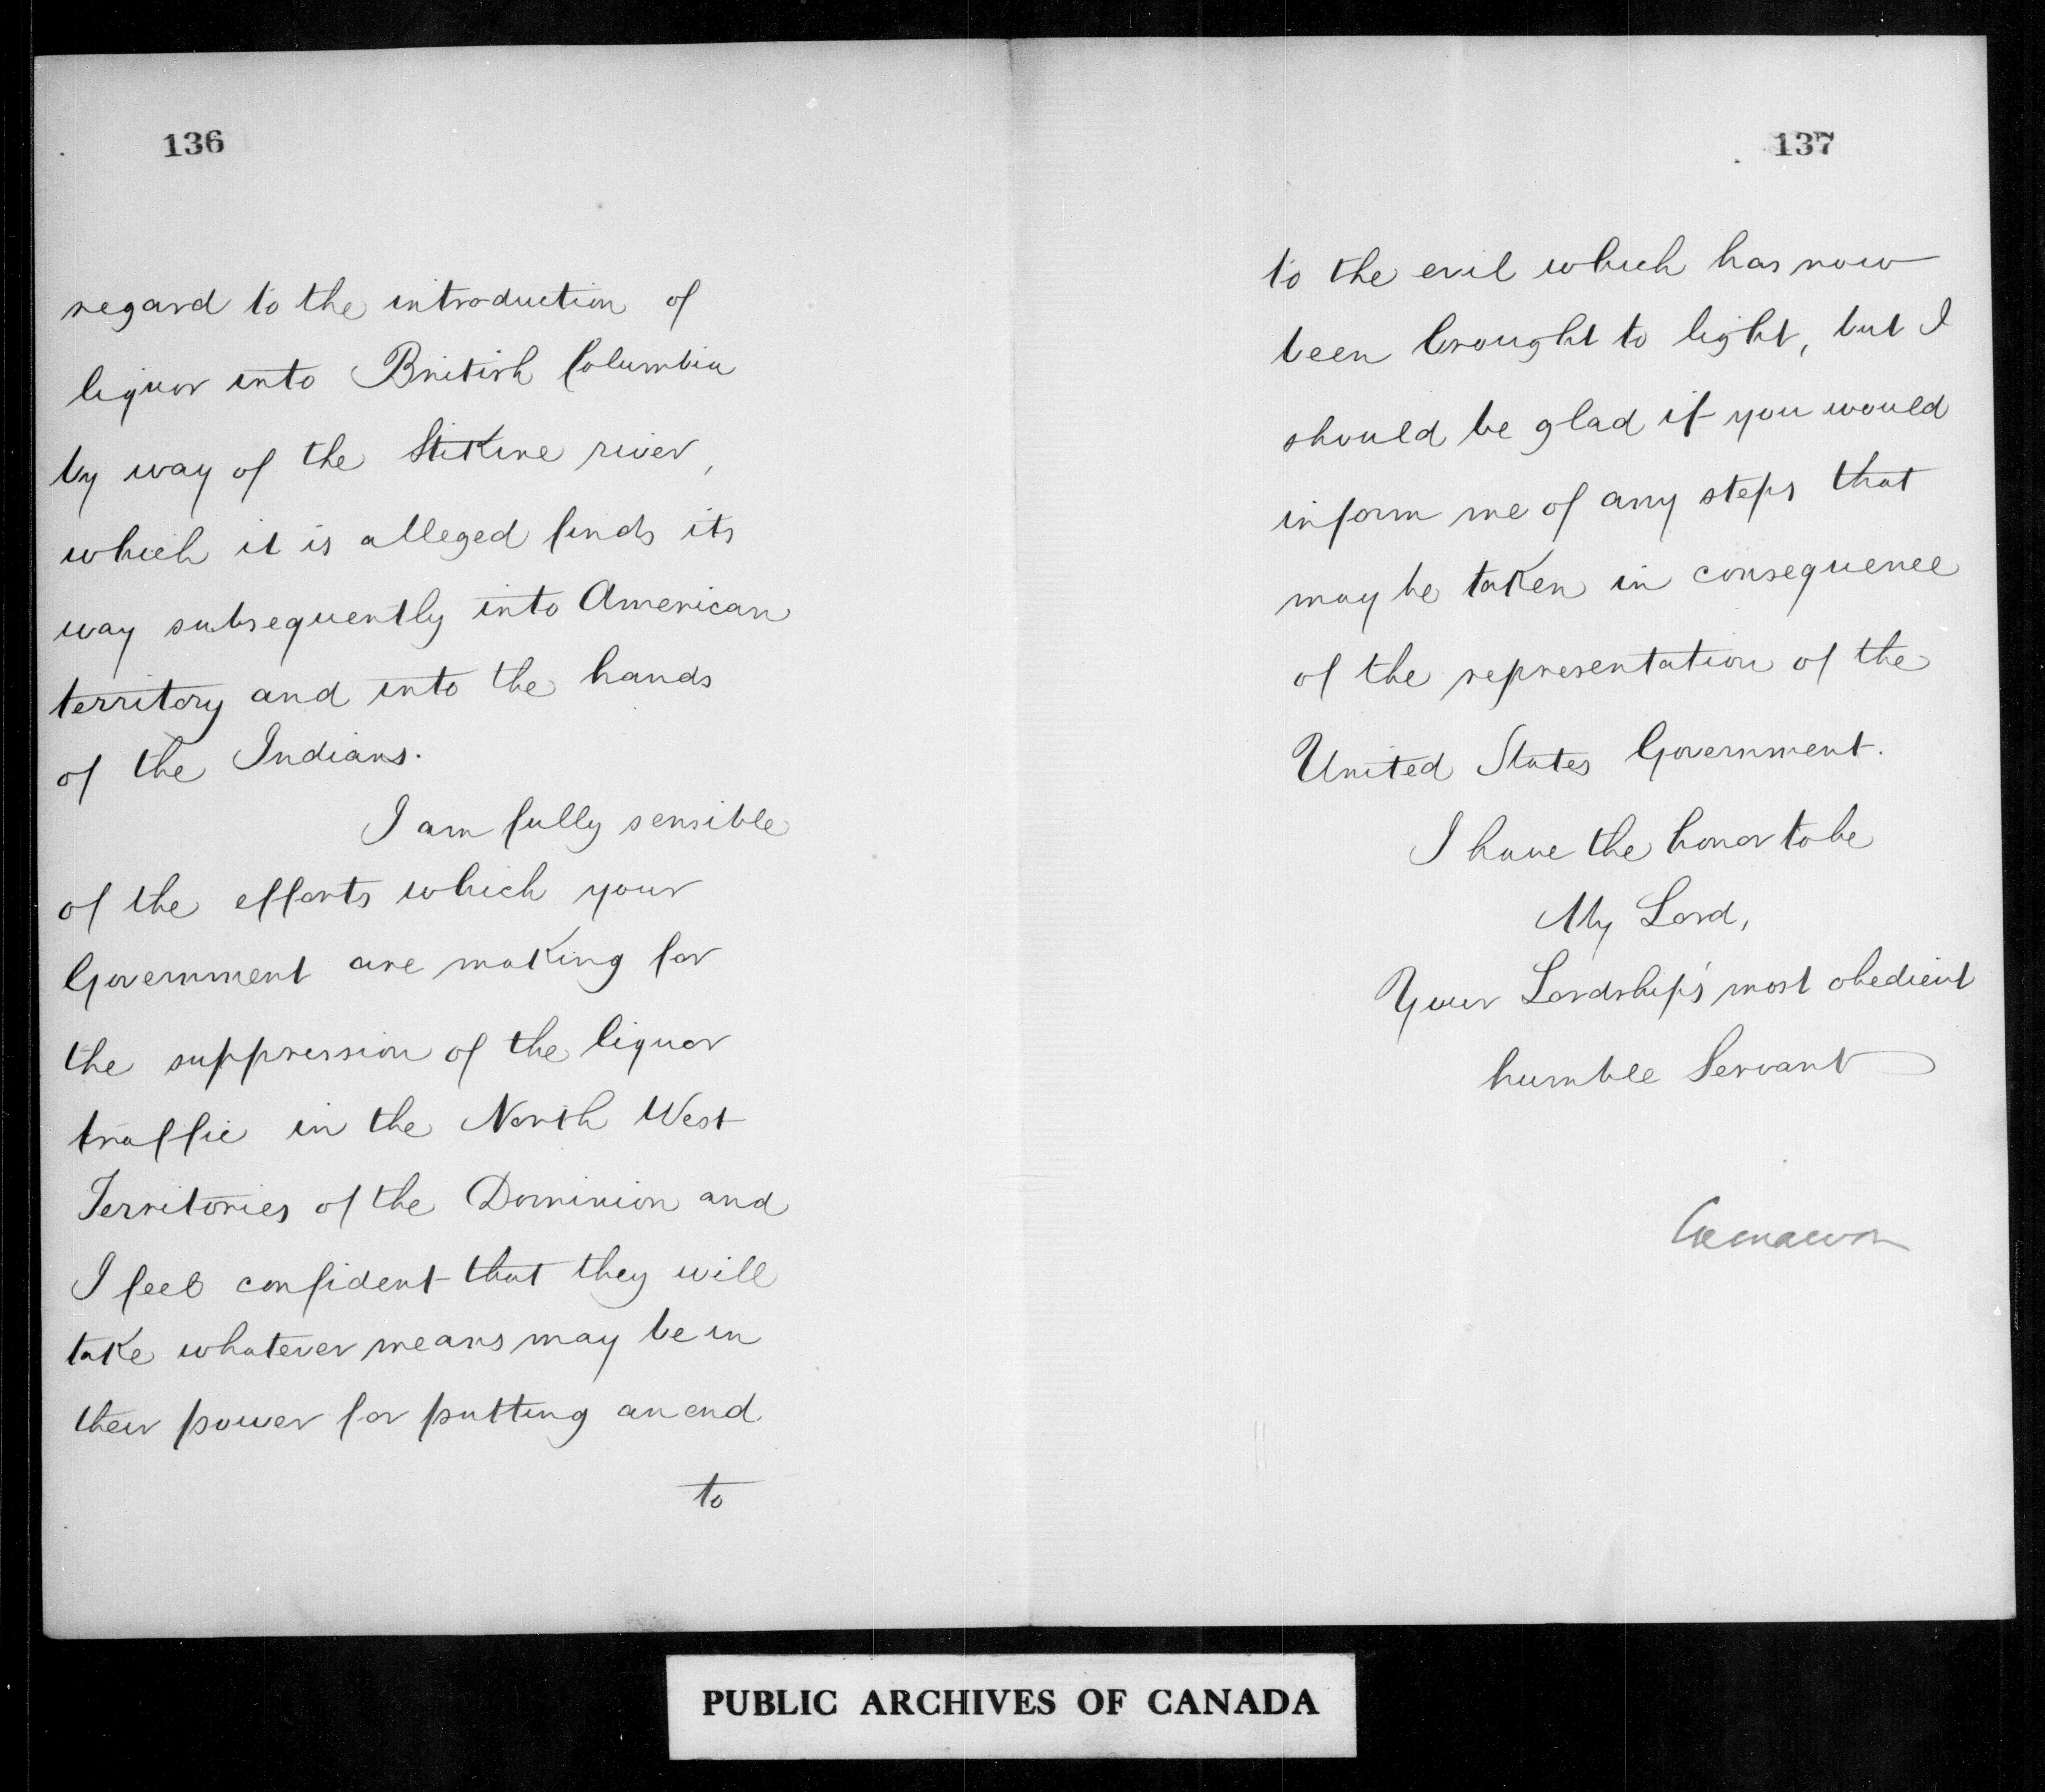 136
regard to the introduction of
liquor into British Columbia
by way of the Stikine river,
which it is alleged finds its
way subsequently into American
territory and into the hands
of the Indians.
I am fully sensible
of the efforts which your
Government are making for
the suppression of the liquor
traffic in the North West
Territories of the Dominion and
I feel confident that they will
take whatever means may be in
their power for putting an end
to
137
to the evil which has now
been brought to light, but I
should be glad if you would
inform me of any steps that
may be taken in consequence
of the representation of the
United States Government.
I have the honor to be
My Lord,
Your Lordship's most obedient
humble Servant
Carnarvon
PUBLIC ARCHIVES OF CANADA